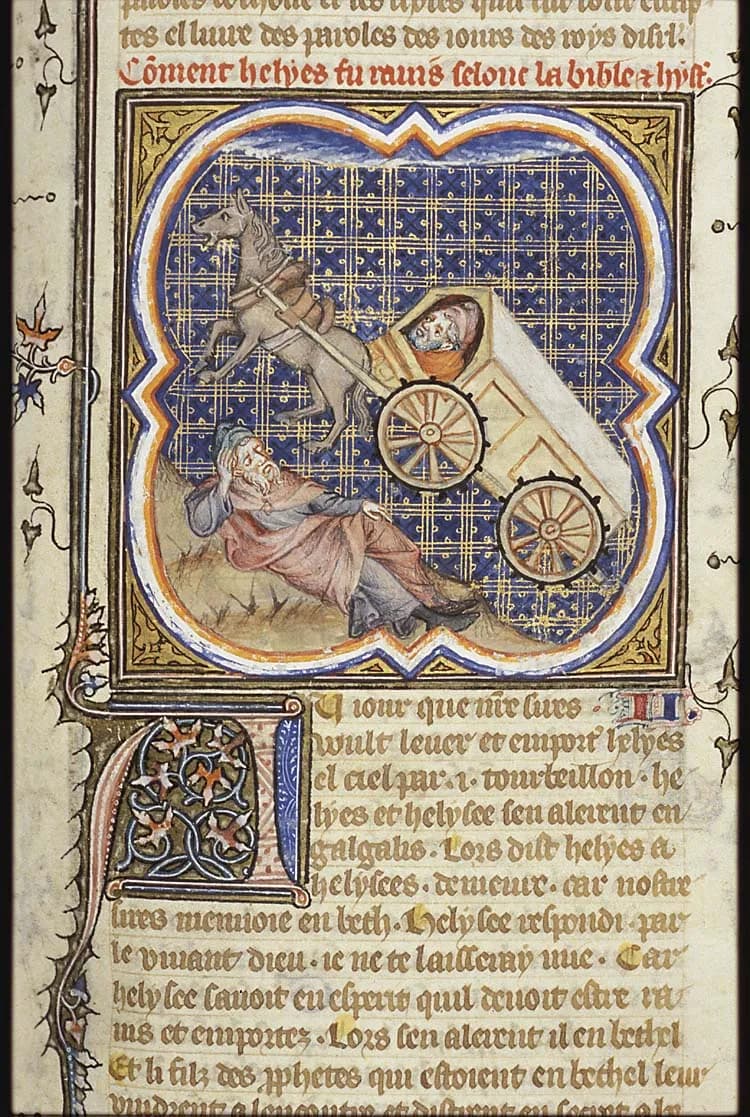 tes el liure des paroles des iours des roys disrl.
Cõment helyes fu rauis selonc la bible & hyst.
A iour que nrẽ sires · II ·
voult leuer et emport' helyes
el ciel par · i · tourbeillon · he
lyes et helysee sen alerent en
galgalis · Lors dist helyes a
helysees · demeure · car nostre
sires menuoie en beth · Helysee respondi · par
le viuant dieu · ie ne te lasseray mie · Car
helysee sauoit en esperit quil deuoit estre ra
uis et emportez · Lors sen alerent il en bethel
Et li filz des pphetes qui estoient en bethel leur
vindrent a lencontre et distrent en secret a he